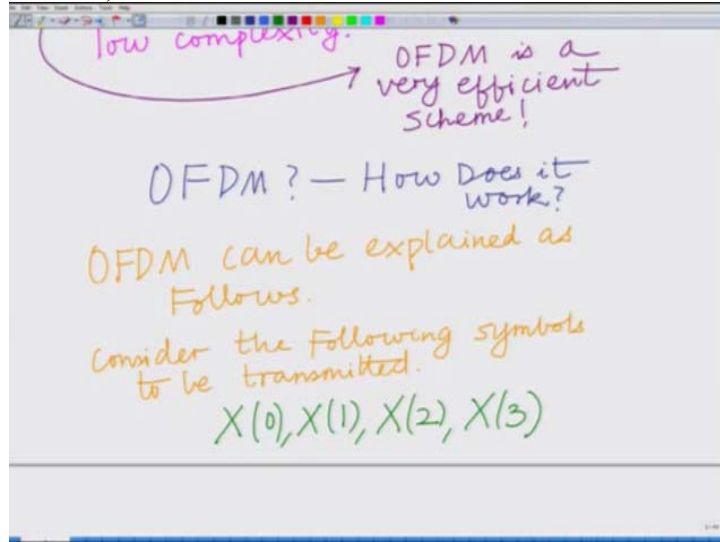 low complexity.
OFDM is a
very efficient
scheme!
OFDM? — How Does it
work?
OFDM can be explained as
Follows.
Consider the Following symbols
to be transmitted.
X(0), X(1), X(2), X(3)